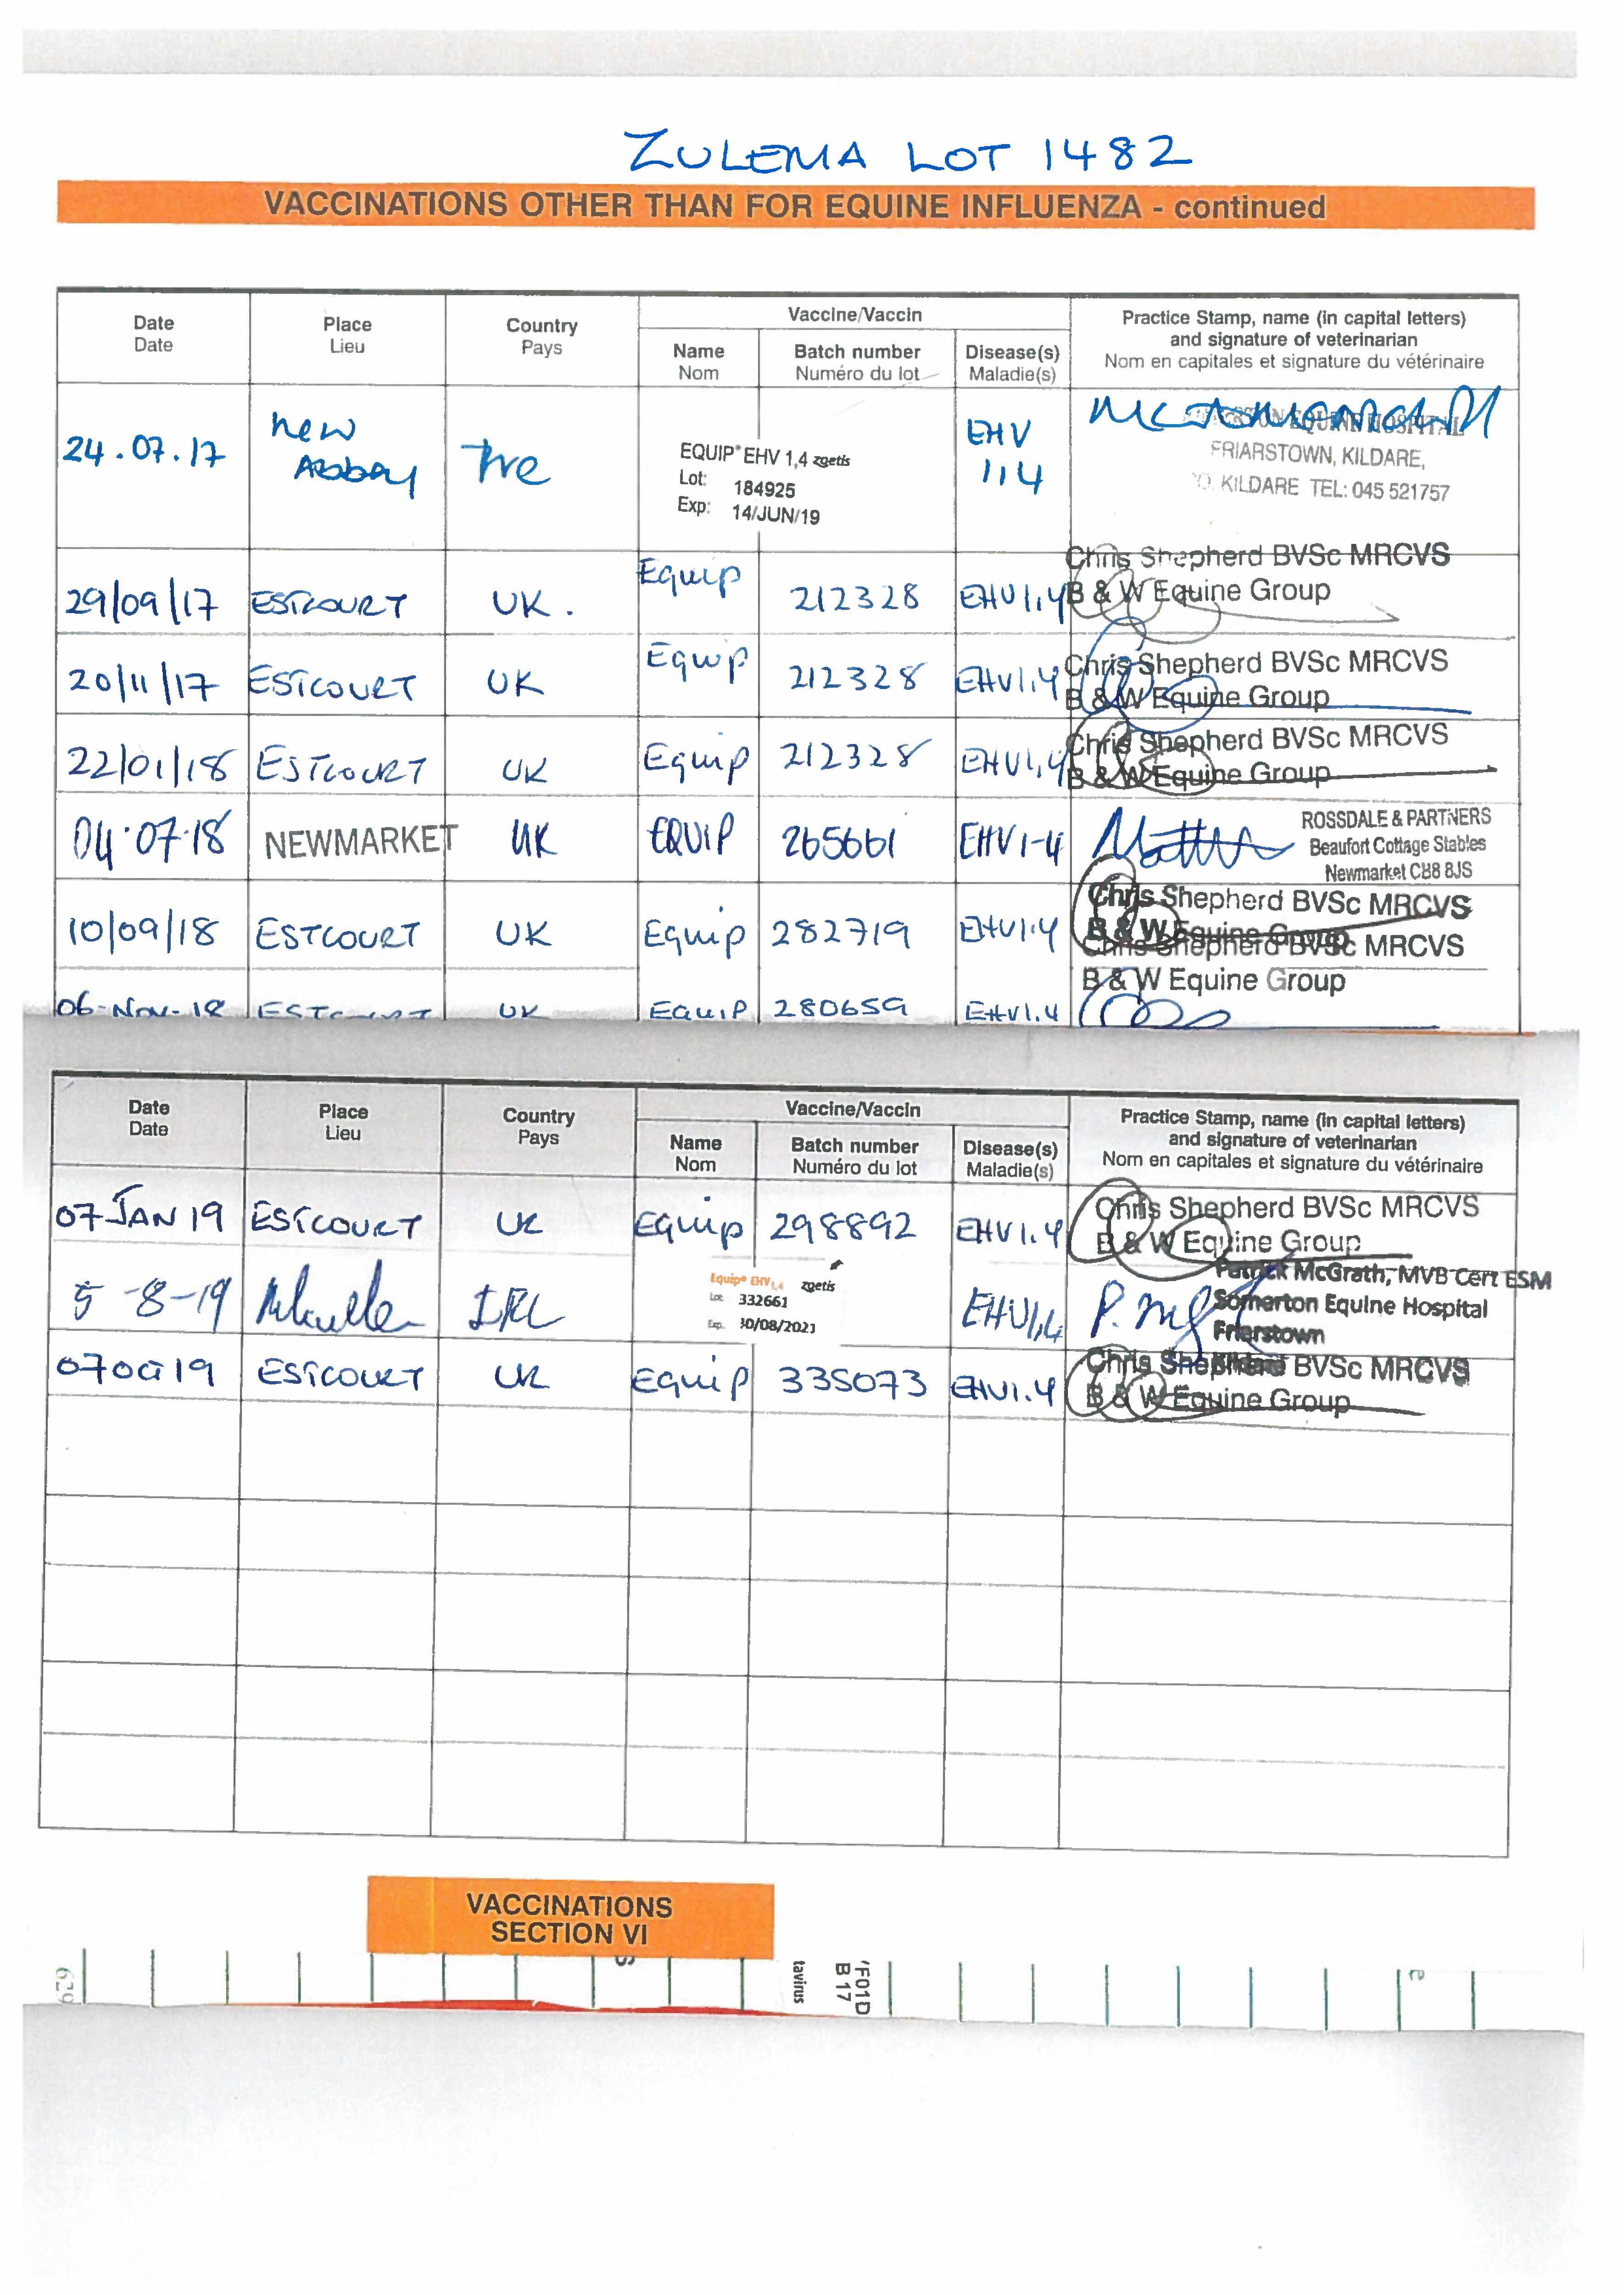 ZULEMA LOT 1482
VACCINATIONS OTHER THAN FOR EQUINE INFLUENZA - continued
Date
Date
Place
Lieu
Country
Pays
Vaccine/Vaccin
Name
Nom
Batch number
Numéro du lot
Disease(s)
Maladie(s)
Practice Stamp, name (in capital letters)
and signature of veterinarian
Nom en capitales et signature du vétérinaire
24.07.17
New
Abbey
Ire
EQUIP® EHV 1,4 zoetis
Lot: 184925
Exp: 14/JUN/19
EHV
1,4
EQUINE HOSPITAL
FRIARSTOWN, KILDARE,
CO. KILDARE TEL: 045 521757
29/09/17 ESTCOURT UK. Equip 212328 EHV1,4
Chris Shepherd BVSc MRCVS
B & W Equine Group
20/11/17 ESTCOURT UK Equip 212328 EHV1,4
Chris Shepherd BVSc MRCVS
B & W Equine Group
22/01/18 ESTCOURT UK Equip 212328 EHV1,4
Chris Shepherd BVSc MRCVS
B & W Equine Group
04.07.18 NEWMARKET UK EQUIP 265661 EHV1-4
ROSSDALE & PARTNERS
Beaufort Cottage Stables
Newmarket CB8 8JS
10/09/18 ESTCOURT UK Equip 282719 EHV1.4
Chris Shepherd BVSc MRCVS
B & W Equine Group
06-Nov-18 ESTCOURT UK EquiP 280659 EHV1.4
Chris Shepherd BVSc MRCVS
B & W Equine Group
Date
Date
Place
Lieu
Country
Pays
Vaccine/Vaccin
Name
Nom
Batch number
Numéro du lot
Disease(s)
Maladie(s)
Practice Stamp, name (in capital letters)
and signature of veterinarian
Nom en capitales et signature du vétérinaire
07 JAN 19 ESTCOURT UK Equip 298892 EHV1.4
Chris Shepherd BVSc MRCVS
B & W Equine Group
5-8-19 IRL
Equip® EHV1,4 zoetis
Lot: 332661
Exp. 30/08/2021
EHV1,4
Patrick McGrath, MVB Cert ESM
Somerton Equine Hospital
Frierstown
Kildare
07 Oct 19 ESTCOURT UK Equip 335073 EHV1.4
Chris Shepherd BVSc MRCVS
B & W Equine Group
VACCINATIONS
SECTION VI
629
tavirus
B 17
F01D